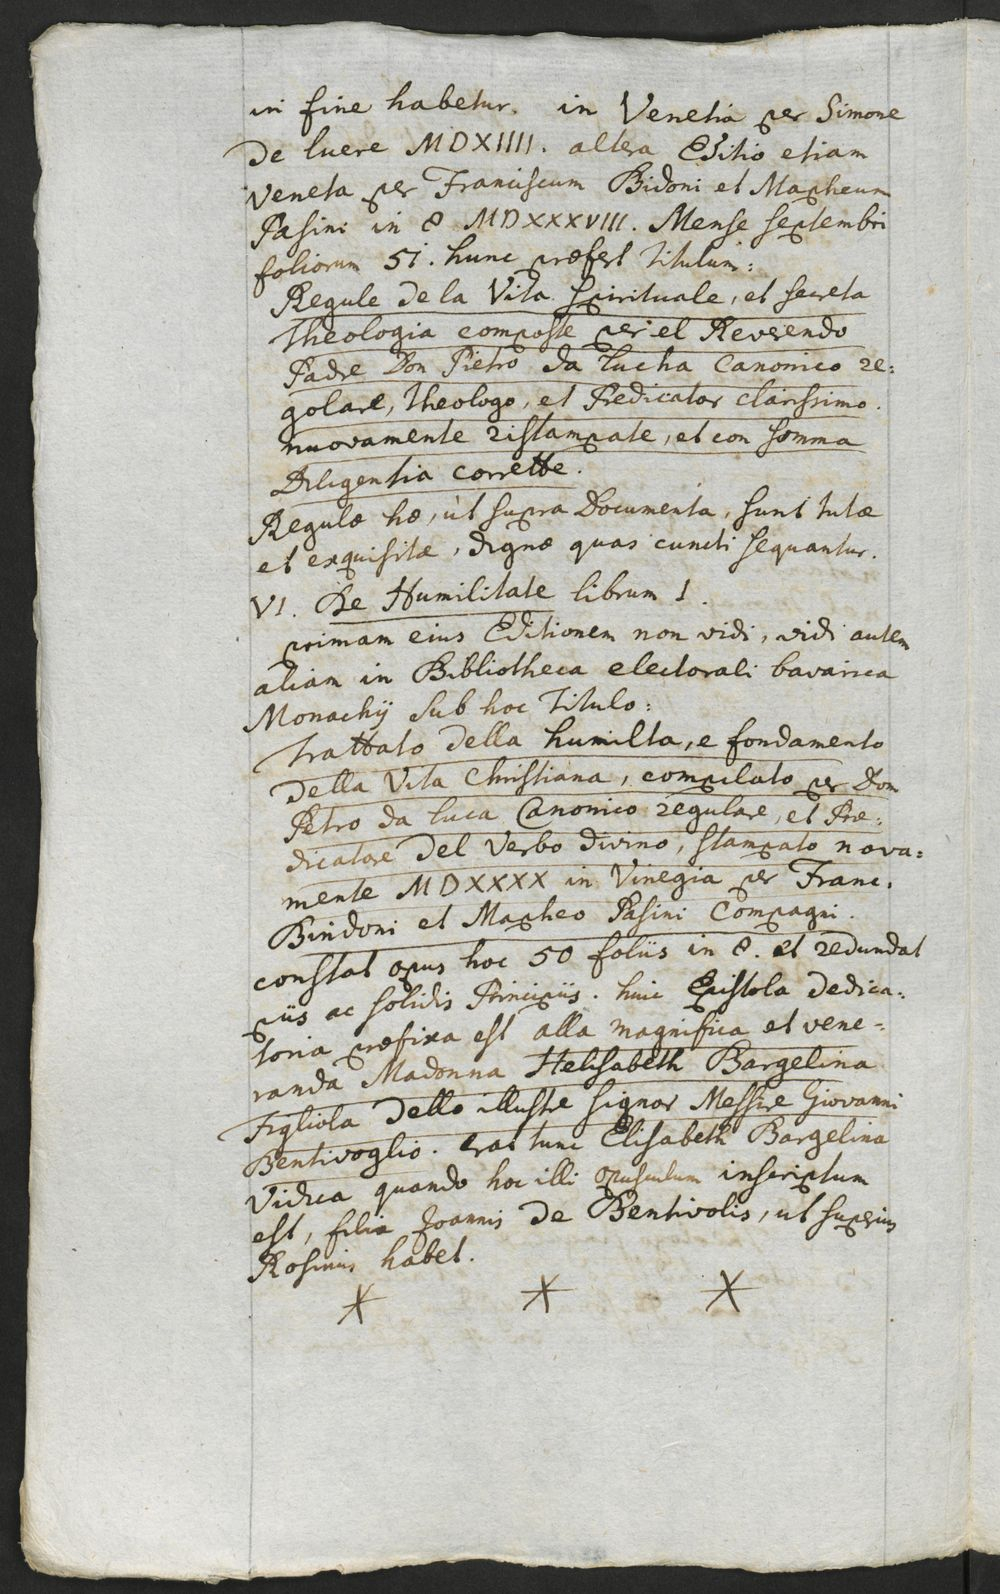 in fine habetur. in Venetia per Simone
de luere MDXIIII. altera Editio etiam
Veneta per Franciscum Bidoni et Mapheum
Pasini in 8 MDXXXVIII. Mense septembri
foliorum 51. hunc præfert titulum:
Regule de la Vita spirituale, et secreta
theologia composte per el Reverendo
Padre Don Pietro da Lucha Canonico re:
golare, theologo, et Predicator clarissimo.
nuovamente ristampate, et con somma
Diligentia corrette.
Regulæ hæ, ut supra Documenta, sunt tutæ
et exquisitæ, dignæ quas cuncti sequantur.
VI. De Humilitate librum 1.
primam eius Editionem non vidi, vidi autem
aliam in Bibliotheca electorali bavarica
Monachij sub hoc Titulo:
trattato della humilta, e fondamento
della Vita Christiana, compilato per Dom
Petro da luca Canonico regulare, et Præ:
dicatore del Verbo divino, stampato nova:
mente MDXXXX in Vinegia per Franc.
Bindoni et Mapheo Pasini Compagni.
constat opus hoc 50 foliis in 8. et redundat
piis ac solidis Principiis. huic Epistola dedica:
toria præfixa est alla magnifica et vene:
randa Madonna Helisabeth Bargelina
Figliola dello illustre signor Messire Giovanni
Bentivoglio. erat tunc Elisabeth Bargelina
Vidua quando hoc illi opusculum inscriptum
est, filia Joannis de Bentivolis, ut superius
Rosinus habet.